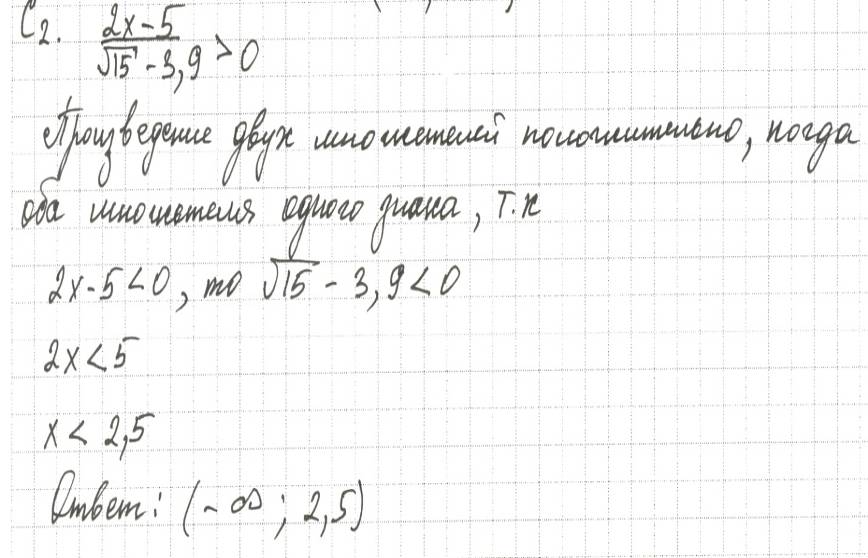 C2. 2x-5
√15 - 3,9 > 0
Произведение двух множетелей положительно, когда
оба множетеля одного знака, т.к
2x-5<0, то √15 - 3,9<0
2x<5
x< 2,5
Ответ: (-∞; 2,5)